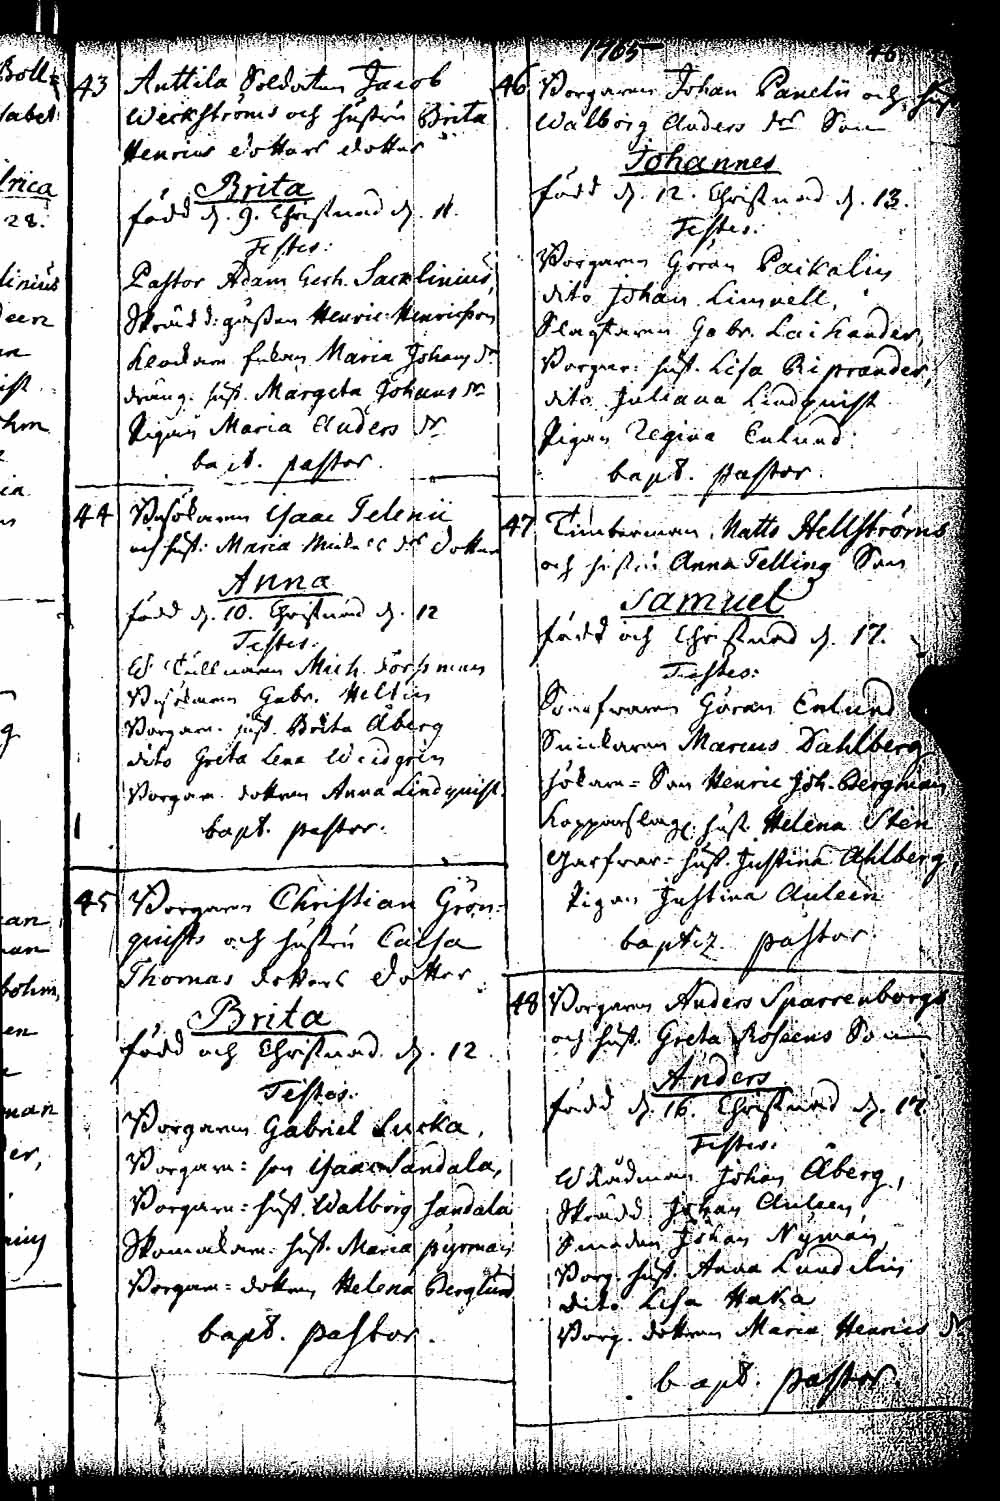 1765
43 Anttila Soldaten Jacob
Weckströms och hustru Brita
Henrics dotters dotter
Brita
född d. 9. Christnad d. 11.
Testes:
Pastor Adam Gerh. Sacklinius,
Skrädd: gässen Henric Henricsson
Klockare Maria Johans dr
dräng. hust. Margeta Johans dr
Pigan Maria Anders dr
bapt. pastor.
44 Isaac Telenii
och hust: Maria dr dotter
Anna
född d. 10. Christnad d. 12
Testes:
Mich. Forssman
Gabr. Hellin
Borgare. hust. Brita Åberg
dito Greta Lena Widgren
Borgare dottren Anna Lindquist
bapt. pastor.
45 Borgaren Christian Grön-
quists och hustru Caisa
Thomas dotters dotter
Brita
född och Christnad d. 12.
Testes:
Borgaren Gabriel Lucka,
Borgare= son Isaac Sandala,
Borgare= hust. Walborg Sandala
Skomakare. hust. Maria Pyrman
Borgare= dottren Helena Berglund
bapt. pastor.
46 Borgaren Johan Panelii och hust
Walborg Anders drs Son
Johannes
född d. 12. Christnad d. 13.
Testes:
Borgaren Göran Paikalin
dito Johan Limnell,
Slagtaren Gabr. Laihander,
Borgare: hust. Lisa Riprander,
dito Juliana Lindquist
Pigan Regina Enlund.
bapt. pastor.
47 Timberman Matts Hellströms
och hustru Anna Telling Son
Samuel
född och Christnad d. 17.
Testes:
Göran Enlund
Snickaren Marcus Dahlberg
Son Henric Joh. Bergman
Kopparslag. hust. Helena Sten
Garfvar= hust. Justina Ahlberg,
Pigan Justina Auleen
baptiz. pastor
48 Borgaren Anders Sparrenborgs
och hust. Greta Roseens Son
Anders
född d. 16. Christnad d. 17.
Testes:
Rådman Johan Åberg,
Skrädd. Johan Auleen,
Smeden Johan Nyman,
Borg. hust. Anna Lundelin
dito Lisa Haka
Borg. dottren Maria Henrics dr
bapt. pastor.